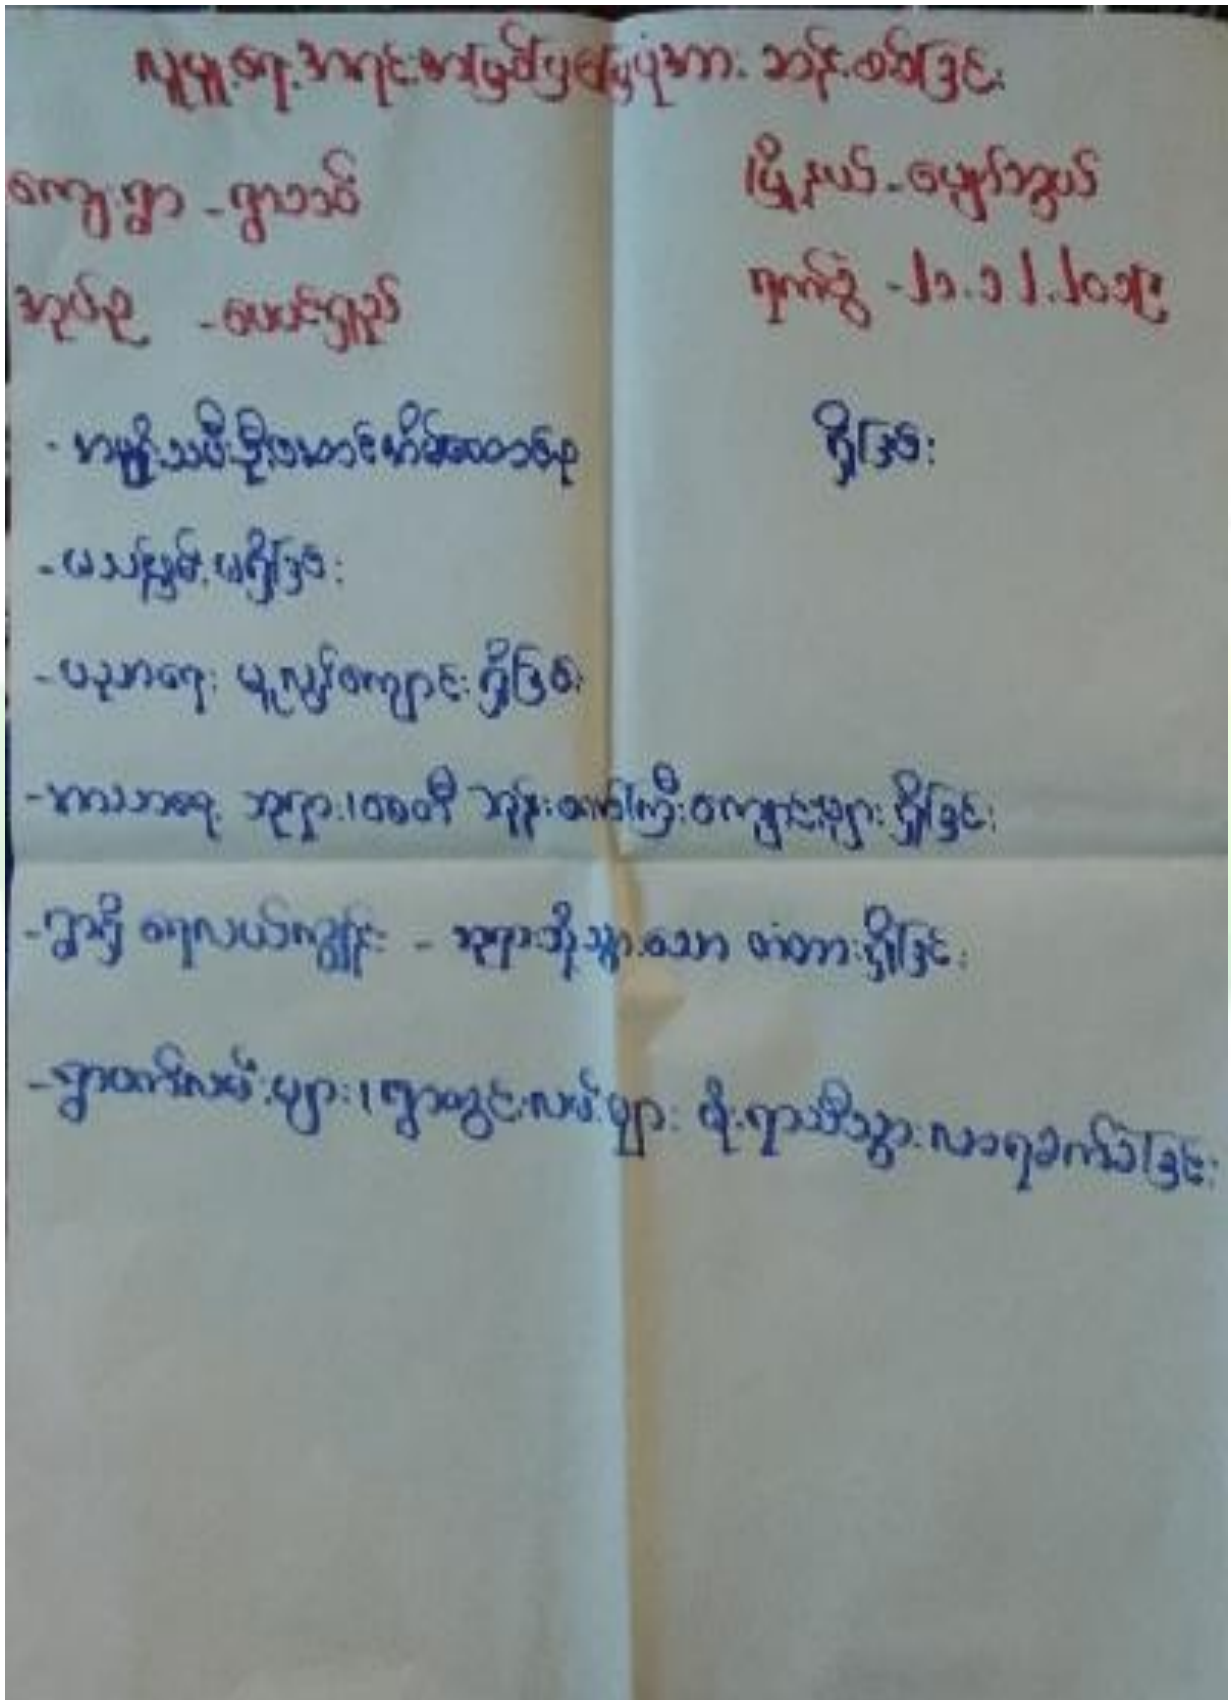 လူမှုရေးအရင်းအမြစ်ပြမြေပုံအား ဆန်းစစ်ခြင်း
ကျေးရွာ - ရွာသစ် မြို့နယ် - ပျော်ဘွယ်
အုပ်စု - ပေပင်ရှည် ရက်စွဲ - ၂၁.၁၂.၂၀၁၉
- အမျိုးသမီးဦးဆောင်အိမ်ထောင်စု ရှိခြင်း
- မသန်စွမ်း မရှိခြင်း
- ပညာရေး မူလွန်ကျောင်း ရှိခြင်း
- ဘာသာရေး ဘုရား၊ စေတီ ဘုန်းတော်ကြီးကျောင်းများ ရှိခြင်း
- ရွာရှိ ရေလယ်ကျွန်း - ဘုရားသို့သွားသော တံတားရှိခြင်း
- ရွာထက်လမ်းများ၊ ရွာတွင်းလမ်းများ မိုးရာသီသွားလာရခက်ခဲခြင်း